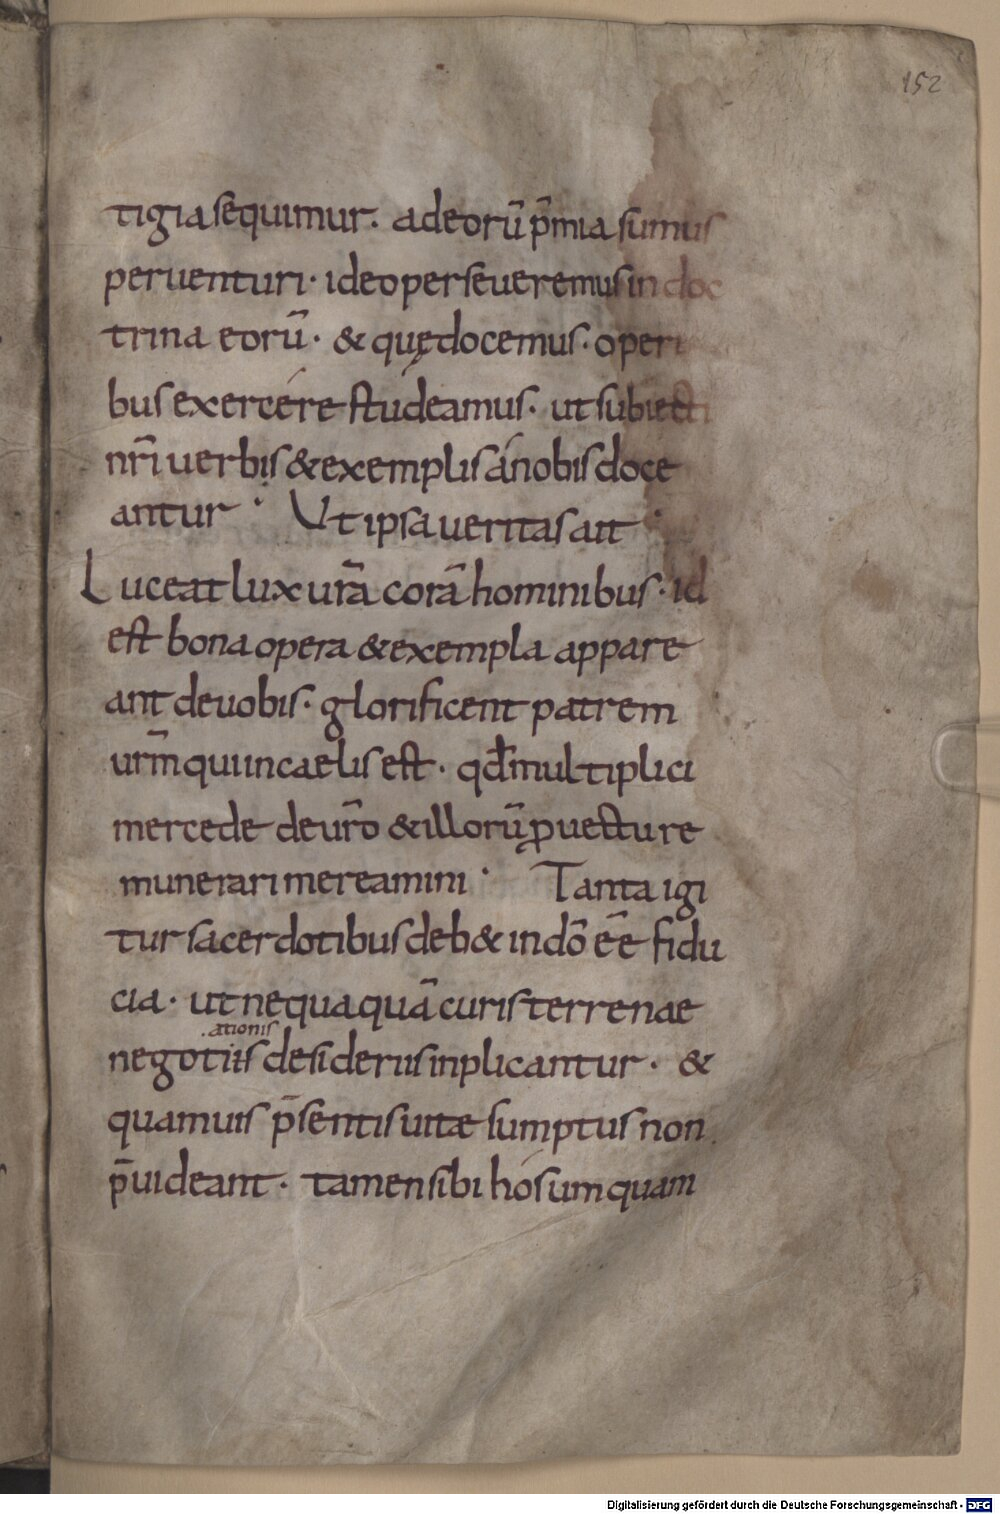 152
tigia sequimur. ad eorū p̄mia sumus
peruenturi· ideo perseueremus in doc
trina eorū· & quę docemus· operi
bus exercére studeamus· ut subiecti
nr̄i uerbis & exemplis á nobis doce
antur· Ut ipsa ueritas ait·
Luceat lux ur̄a corā hominibus· id
est bona opera & exempla appare
ant de uobis· glorificent patrem
ur̄m qui in caelis est· qđ multiplici
mercede de ur̄o & illorū ꝓuectu re
munerari mereamini· Tanta igi
tur sacerdotibus deb& in dō eē fidu
cia· ut nequaquā curis terrenae
.ationis
negotiis desideriis inplicantur· &
quamuis p̄sentis uitae sumptus non
p̄uideant· tamen sibi hós umquam
Digitalisierung gefördert durch die Deutsche Forschungsgemeinschaft - DFG